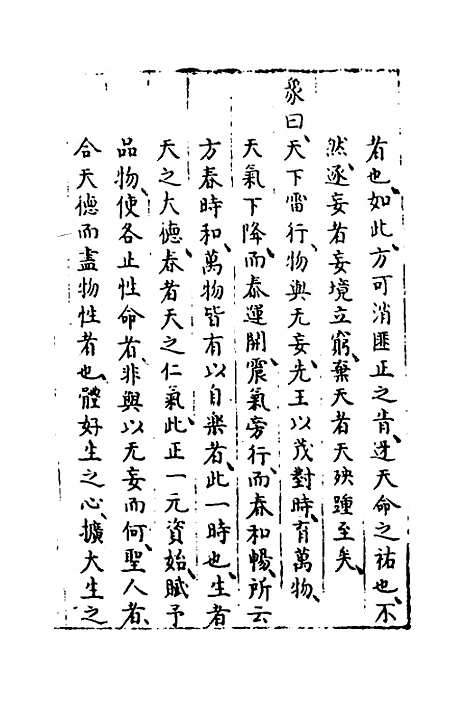 者也如此方可消匪正之眚迓天命之祐也不
然逐妄者妄境立窮棄天者天殃踵至矣
象曰天下雷行物與无妄先王以茂對時育萬物
天氣下降而泰運開震氣旁行而春和暢所云
方春時和萬物皆有以自樂者此一時也生者
天之大德春者天之仁氣此正一元資始賦予
品物使各止性命者非與以无妄而何聖人者
合天德而盡物性者也體好生之心擴大生之